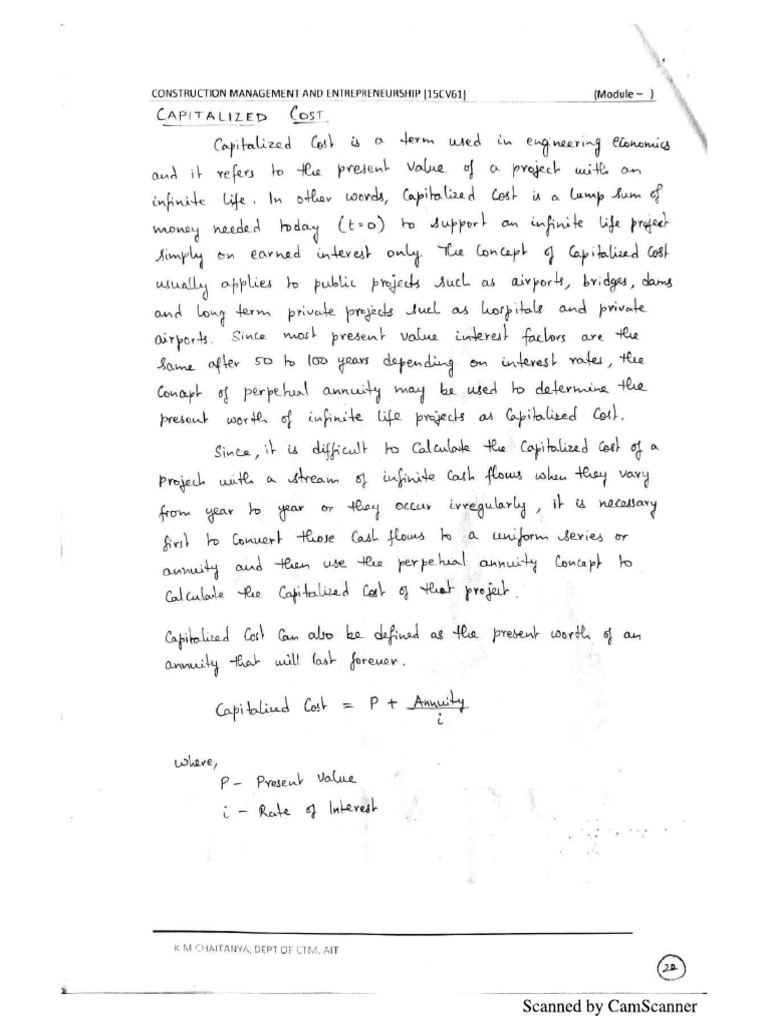 CONSTRUCTION MANAGEMENT AND ENTREPRENEURSHIP [15CV61] (Module – )
CAPITALIZED COST
Capitalized Cost is a term used in engineering Economics
and it refers to the present value of a project with an
infinite life. In other words, Capitalized Cost is a lump sum of
money needed today (t=0) to support an infinite life project
simply on earned interest only. The Concept of Capitalized Cost
usually applies to public projects such as airports, bridges, dams
and long term private projects such as hospitals and private
airports. Since most present value interest factors are the
same after 50 to 100 years depending on interest rates, the
Concept of perpetual annuity may be used to determine the
present worth of infinite life projects as Capitalized Cost.
Since, it is difficult to Calculate the Capitalized Cost of a
project with a stream of infinite Cash flows when they vary
from year to year or they occur irregularly, it is necessary
first to Convert those Cash flows to a uniform series or
annuity and then use the perpetual annuity Concept to
Calculate the Capitalized Cost of that project.
Capitalized Cost Can also be defined as the present worth of an
annuity that will last forever.
Capitalized Cost = P + Annuity
i
where,
P – Present Value
i – Rate of Interest
K M CHAITANYA, DEPT OF CTM, AIT
22
Scanned by CamScanner